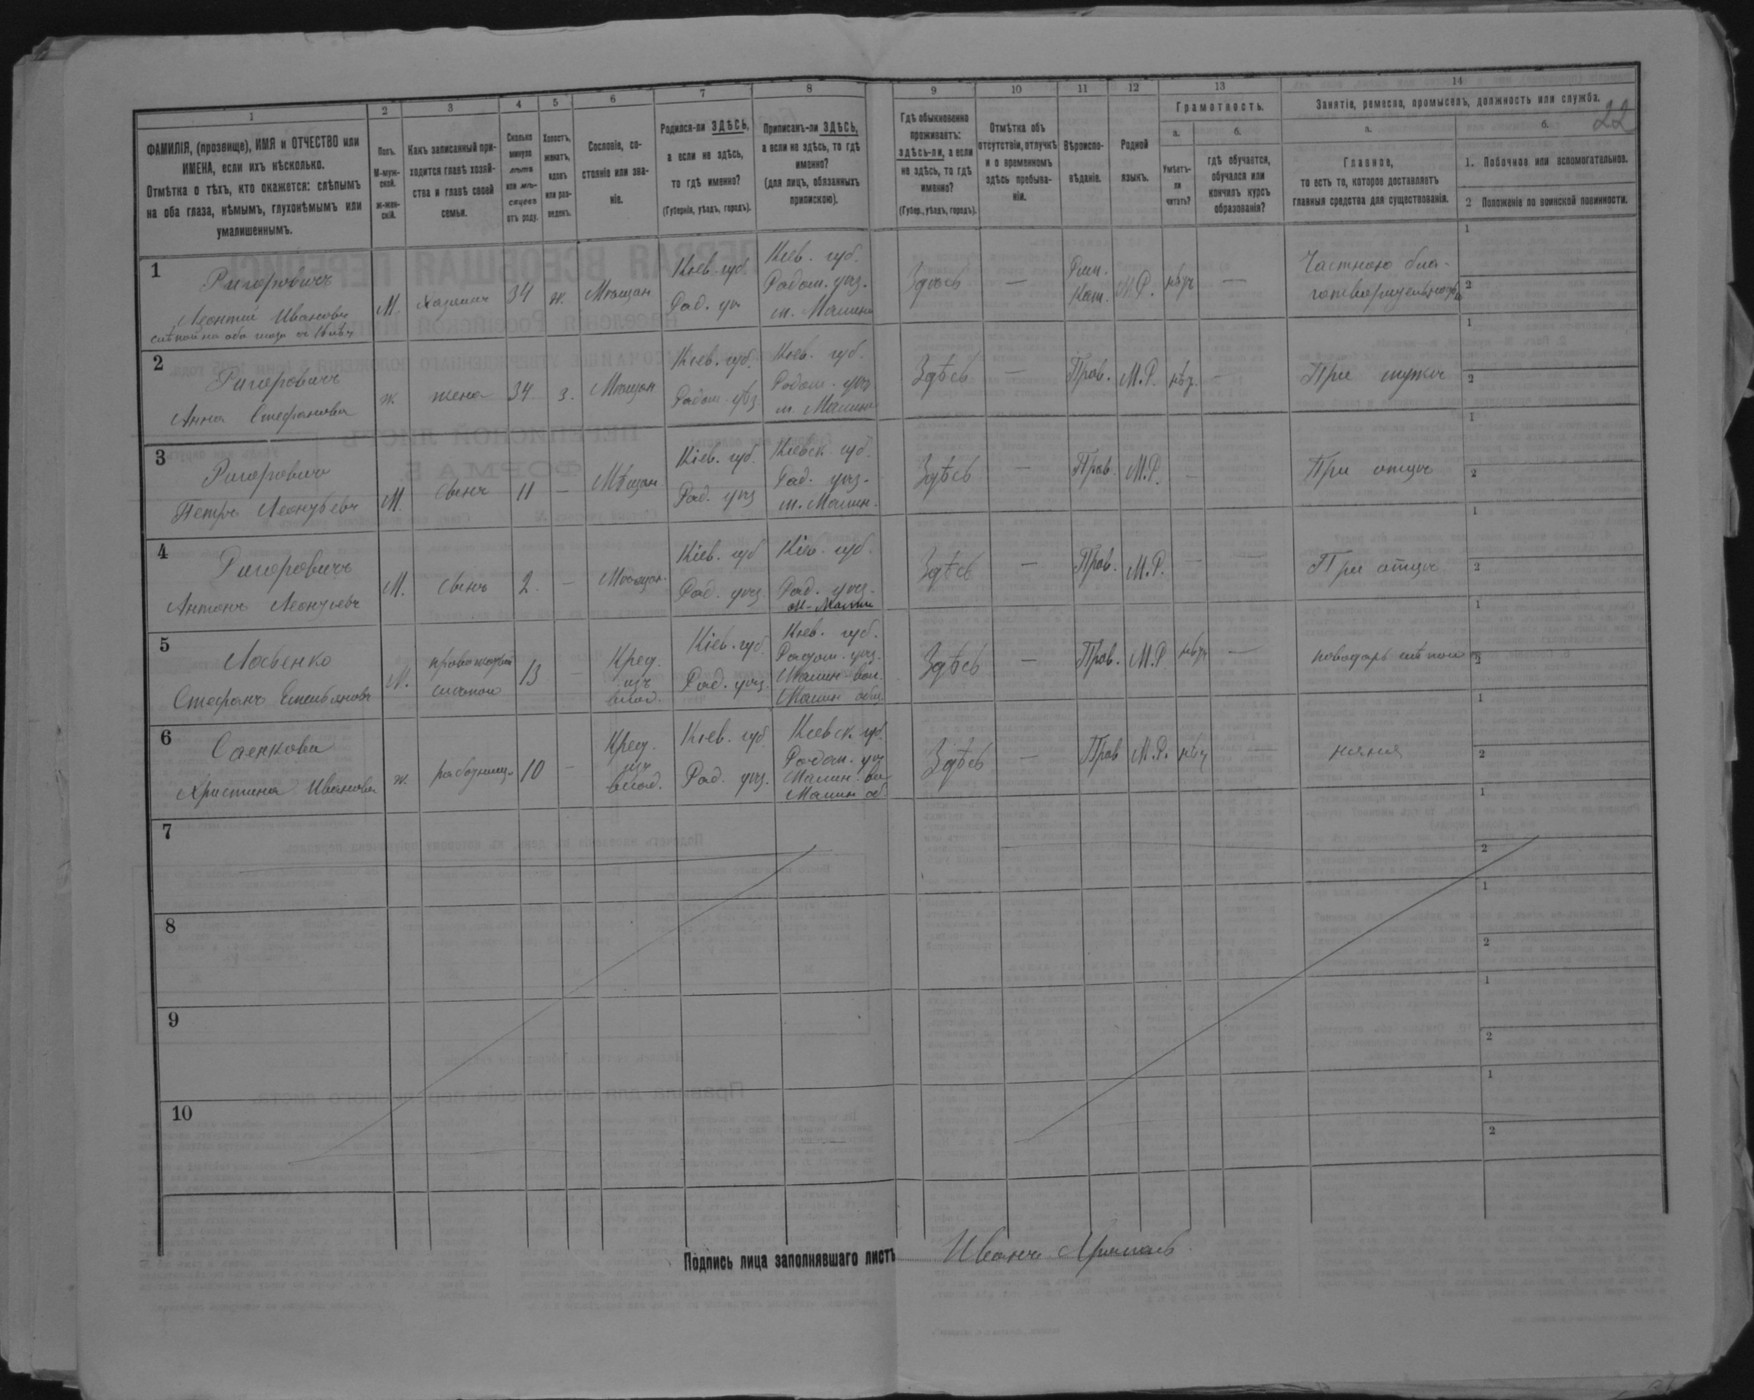 22
1 2 3 4 5 6 7 8 9 10 11 12 13 14
ФАМИЛІЯ, (прозвище), ИМЯ и ОТЧЕСТВО или
ИМЕНА, если ихъ нѣсколько.
Отмѣтка о тѣхъ, кто окажется: слѣпымъ
на оба глаза, нѣмымъ, глухонѣмымъ или
умалишеннымъ.
Полъ.
М-муж-
ской.
Ж-жен-
скій.
Какъ записанный при-
ходится главѣ хозяй-
ства и главѣ своей
семьи.
Сколько
минуло
лѣтъ
или мѣ-
сяцевъ
отъ роду.
Холостъ,
женатъ,
вдовъ
или раз-
веденъ.
Сословіе, со-
стояніе или зва-
ніе.
Родился-ли ЗДѢСЬ,
а если не здѣсь,
то гдѣ именно?
(Губернія, уѣздъ, городъ).
Приписанъ-ли ЗДѢСЬ,
а если не здѣсь, то гдѣ
именно?
(для лицъ, обязанныхъ
припискою).
Гдѣ обыкновенно
проживаетъ:
здѣсь-ли, а если
не здѣсь, то гдѣ
именно?
(Губер., уѣздъ, городъ).
Отмѣтка объ
отсутствіи, отлучкѣ
и о временномъ
здѣсь пребыва-
ніи.
Вѣроиспо-
вѣданіе.
Родной
языкъ.
Грамотность.
а.
Умѣетъ-
ли
читать?
б.
гдѣ обучается,
обучался или
кончилъ курсъ
образованія?
Занятіе, ремесло, промыселъ, должность или служба.
а.
Главное,
то есть то, которое доставляетъ
главныя средства для существованія.
б.
1. Побочное или вспомогательное.
2 Положеніе по воинской повинности.
1
Ригоровичъ
Леонтій Ивановъ
слѣпой на оба глаза
М. хозяинъ 34 ж. Мѣщан
Кіев. губ
Рад. уѣ
Кіев. губ.
Радом. уѣз.
м. Малинъ
Здѣсь —
Рим.
Кат.
М.Р. нѣтъ —
Частною бла-
1
2
2
Ригоровичъ
Анна Стефанова
ж. жена 34 з. Мѣщан
Кіев. губ.
Радом. уѣз
Кіев. губ.
Радом. уѣз
м. Малинъ
Здѣсь — Прав. М.Р. нѣт. — При мужѣ
1
2
3
Ригоровичъ
Петръ Леонтьевъ
М. сынъ 11 — Мѣщан
Кіев. губ.
Рад. уѣз
Кіевск. губ.
Рад. уѣз.
м. Малин.
Здѣсь — Прав. М.Р. — При отцѣ
1
2
4
Ригоровичъ
Антонъ Леонтьевъ
М. сынъ 2 — Мѣщан.
Кіев. губ
Рад. уѣз
Кіев. губ.
Рад. уѣз.
м. Малин
Здѣсь — Прав. М.Р. — — При отцѣ
1
2
5
Лосьенко
Стефанъ
М. 13 —
Крест.
изъ
влад.
Кіев. губ
Рад. уѣз.
Кіев. губ.
Радом. уѣз.
Малин. вол.
Малин общ
Здѣсь — Прав. М.Р нѣтъ — поводарь слѣпого
1
2
6
Саенкова
Христина Иванова
ж. работниц. 10 —
Крест.
изъ
влад.
Кіев. губ.
Рад. уѣз.
Кіевск. губ.
Радом. уѣз
Малин. во
Малин об
Здѣсь — Прав М.Р. нѣт — няня
1
2
7
1
2
8
1
2
9
1
2
10
1
2
Подпись лица заполнявшаго листъ Иванъ